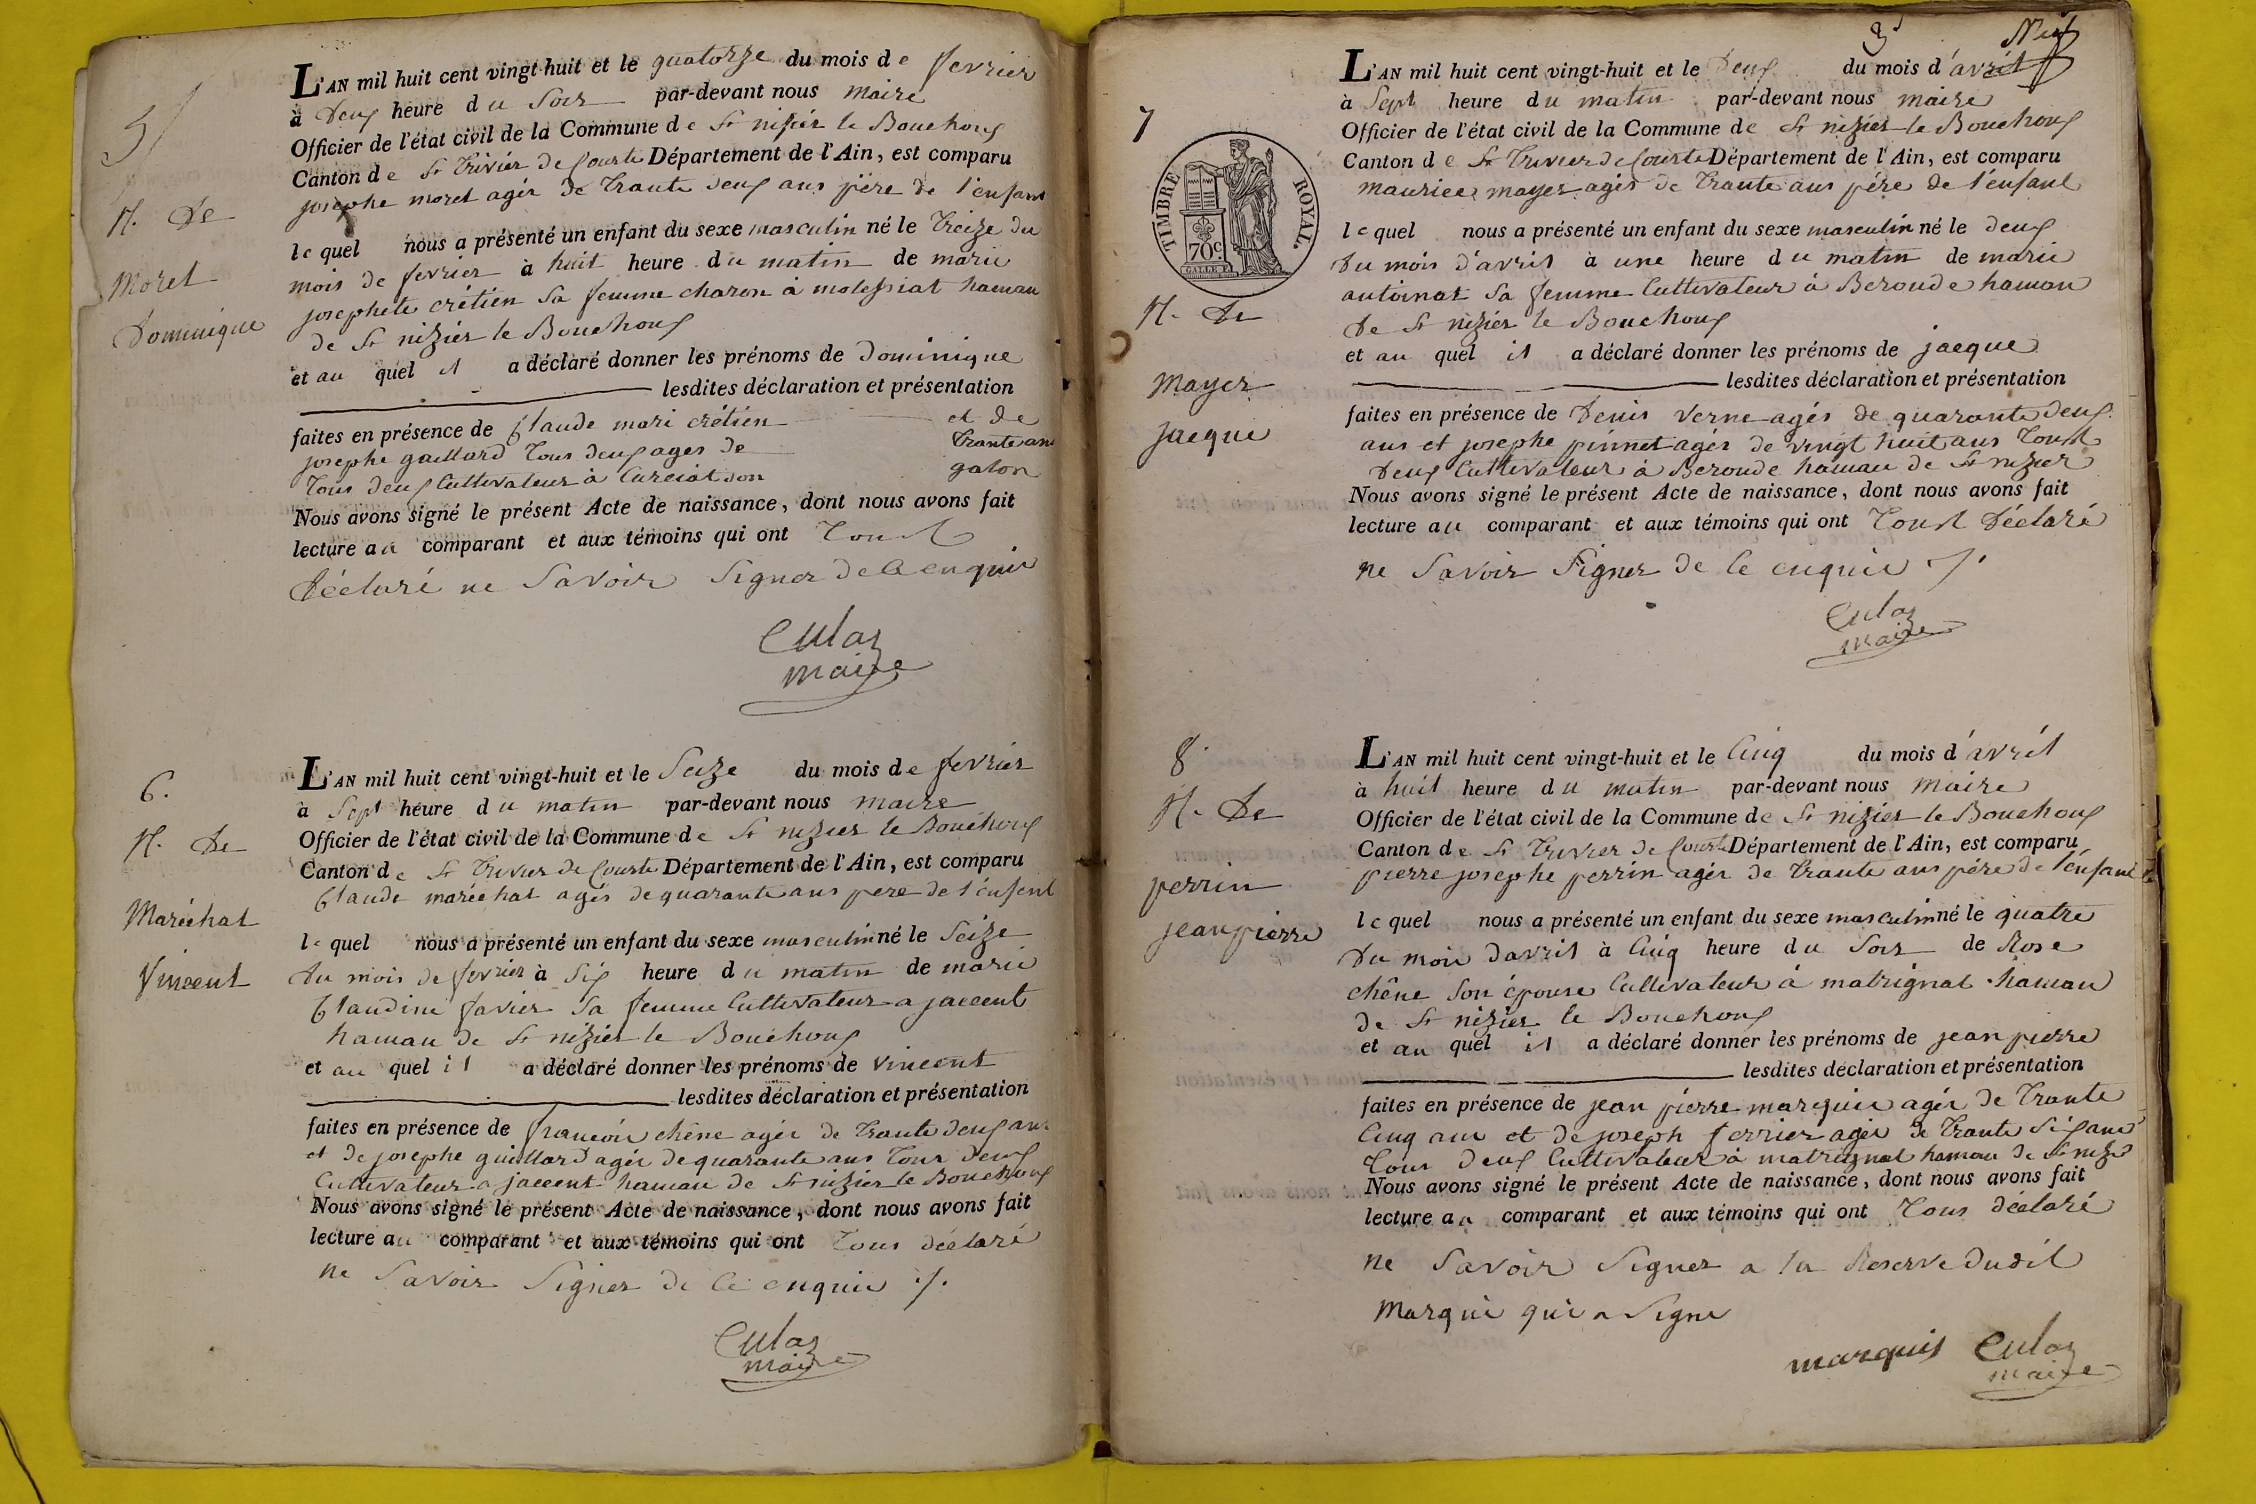 5/
N. De
Moret
Dominique
L'AN mil huit cent vingt-huit et le quatorze du mois de fevrier
à Deux heure du Soir par-devant nous maire
Officier de l'état civil de la Commune de St nizier le Bouchoux
Canton de St Trivier de Courte Département de l'Ain, est comparu
josephe moret agér de Trante deux ans pére de l'enfant
lequel nous a présenté un enfant du sexe masculin né le Treize du
mois de fevrier à huit heure du matin de marie
josephete crétien Sa femme charon a molessiat hamau
de St nizier le Bouchoux
et au quel il a déclaré donner les prénoms de Dominique
lesdites déclaration et présentation
faites en présence de Claude mari crétien et de
josephe gaillard Tous deux ages de Trante ans
Tous deux Cultivateur à Curciat don galon
Nous avons signé le présent Acte de naissance, dont nous avons fait
lecture au comparant et aux témoins qui ont Tous
Déclaré ne Savoir Signer de ce enquis
Culaz
maire
6.
N. De
Maréchal
Vincent
L'AN mil huit cent vingt-huit et le Seize du mois de fevrier
à Sept heure du matin par-devant nous maire
Officier de l'état civil de la Commune de St nizier le Bouchoux
Canton de St Trivier de Courte Département de l'Ain, est comparu
Claude maréchal agés de quarante ans pere de l'enfent
lequel nous a présenté un enfant du sexe masculin né le Seize
du mois de fevrier à Six heure du matin de marie
Claudine favier Sa femme Cultivateur a jaccent
hamau de St nizier le Bouchoux
et au quel il a déclaré donner les prénoms de vincent
lesdites déclaration et présentation
faites en présence de françois chêne agér de Trante deux ans
et de josephe guillard agér de quarante ans Tous deux
Cultivateur a jaccent hamau de St nizier le Bouchoux
Nous avons signé le présent Acte de naissance, dont nous avons fait
lecture au comparant et aux témoins qui ont Tous déclaré
ne Savoir Signer de ce enquis ./.
Culaz
maire
3
7
TIMBRE ROYAL.
70c.
N. De
Mayer
jacque
L'AN mil huit cent vingt-huit et le Deux du mois d'avril
à Sept heure du matin par-devant nous maire
Officier de l'état civil de la Commune de St nizier le Bouchoux
Canton de St Trivier de Courte Département de l'Ain, est comparu
maurice mayer agés de Trante ans pére de l'enfant
lequel nous a présenté un enfant du sexe masculin né le deux
Du mois d'avril à une heure du matin de marie
antoinat Sa femme Cultivateur à Beroude hamau
de St nizier le Bouchoux
et au quel il a déclaré donner les prénoms de jacque
lesdites déclaration et présentation
faites en présence de Denis verne agés de quarante deux
ans et josephe pinnet agér de vingt huit ans Tous
Deux Cultivateur à Beroude hamau de St nizier
Nous avons signé le présent Acte de naissance, dont nous avons fait
lecture au comparant et aux témoins qui ont Tous Déclaré
ne Savoir Signer de ce enquis ./.
Culaz
maire
8.
N. De
perrin
jean pierre
L'AN mil huit cent vingt-huit et le Cinq du mois d'avril
à huit heure du matin par-devant nous maire
Officier de l'état civil de la Commune de St nizier le Bouchoux
Canton de St Trivier de Courte Département de l'Ain, est comparu
pierre josephe perrin agér de Trante ans pére de l'enfant
lequel nous a présenté un enfant du sexe masculin né le quatre
Du mois davril à Cinq heure du Soir de Rose
chêne Son épouse Cultivateur à matrignat hamau
de St nizier le Bouchoux
et au quel il a déclaré donner les prénoms de jean pierre
lesdites déclaration et présentation
faites en présence de jean pierre marquis agér de Trante
Cinq ans et de joseph ferrier agér de Trante Six ans
Tous deux Cultivateur à matrignat hamau de St nizier
Nous avons signé le présent Acte de naissance, dont nous avons fait
lecture au comparant et aux témoins qui ont Tous déclaré
ne Savoir Signer a la Reserve dudit
Marqui qui a Signe
marquis Culaz
maire